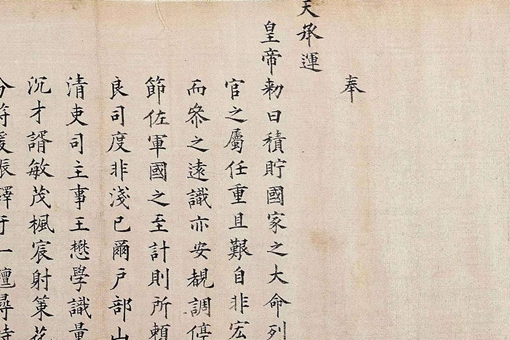 奉
天承運
皇帝勅曰積貯國家之大命列
官之屬任重且艱自非宏
而叅之遠識亦安覩調停
節佐軍國之至計則所賴
良司度非淺已爾戶部山
清吏司主事王懋學識量
沉才諝敏茂楓宸射策花